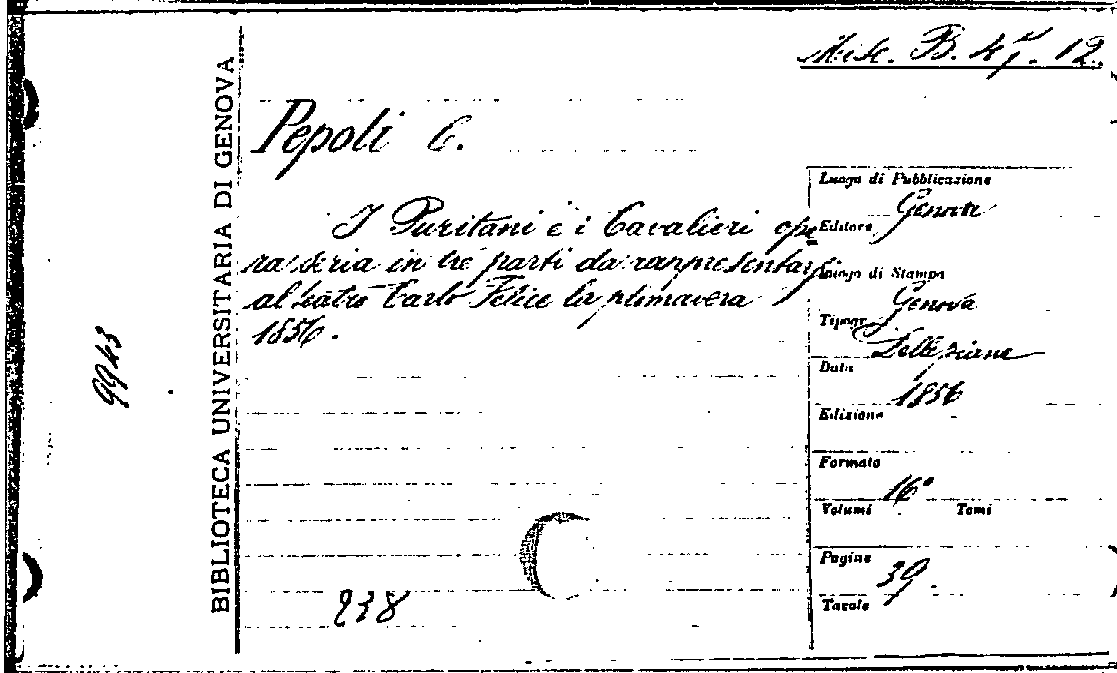 Misc. B. 41. 12.
Pepoli C.
I Puritani e i Cavalieri ope
ra seria in tre parti da rappresentarsi
al teatro Carlo Felice la primavera
1856.
238
BIBLIOTECA UNIVERSITARIA DI GENOVA
9943
Luogo di Pubblicazione
Genova
Editore
Luogo di Stampa
Genova
Tipogr.
Data
1856
Edizione
Formato
16°
Volumi Tomi
Pagine
39.
Tavole